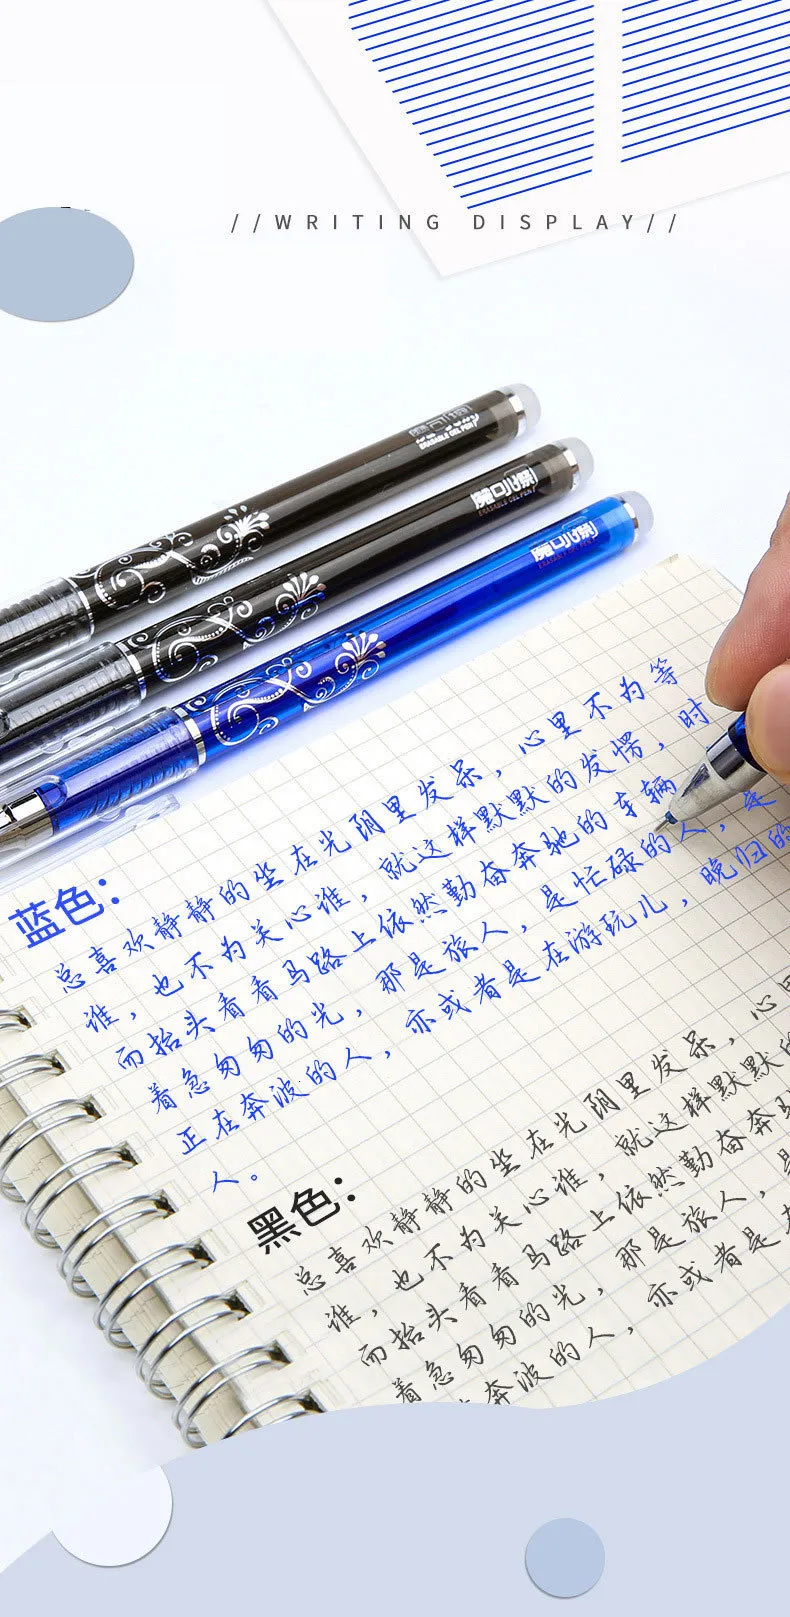 //WRITING DISPLAY//
ERASABLE GEL PEN
ERASABLE GEL PEN
蓝色:
总喜欢静静的坐在光阴里发呆，心里不为等
谁，也不为关心谁，就这样默默的发愣，时
而抬头看看马路上依然勤奋奔驰的车辆
着急匆匆的光，那是旅人，是忙碌的人，是
正在奔波的人，亦或者是在游玩儿，晚归的
人。
黑色:
总喜欢静静的坐在光阴里发呆，心里
谁，也不为关心谁，就这样默默的
而抬头看看马路上依然勤奋奔驰
着急匆匆的光，那是旅人，是
奔波的人，亦或者是在